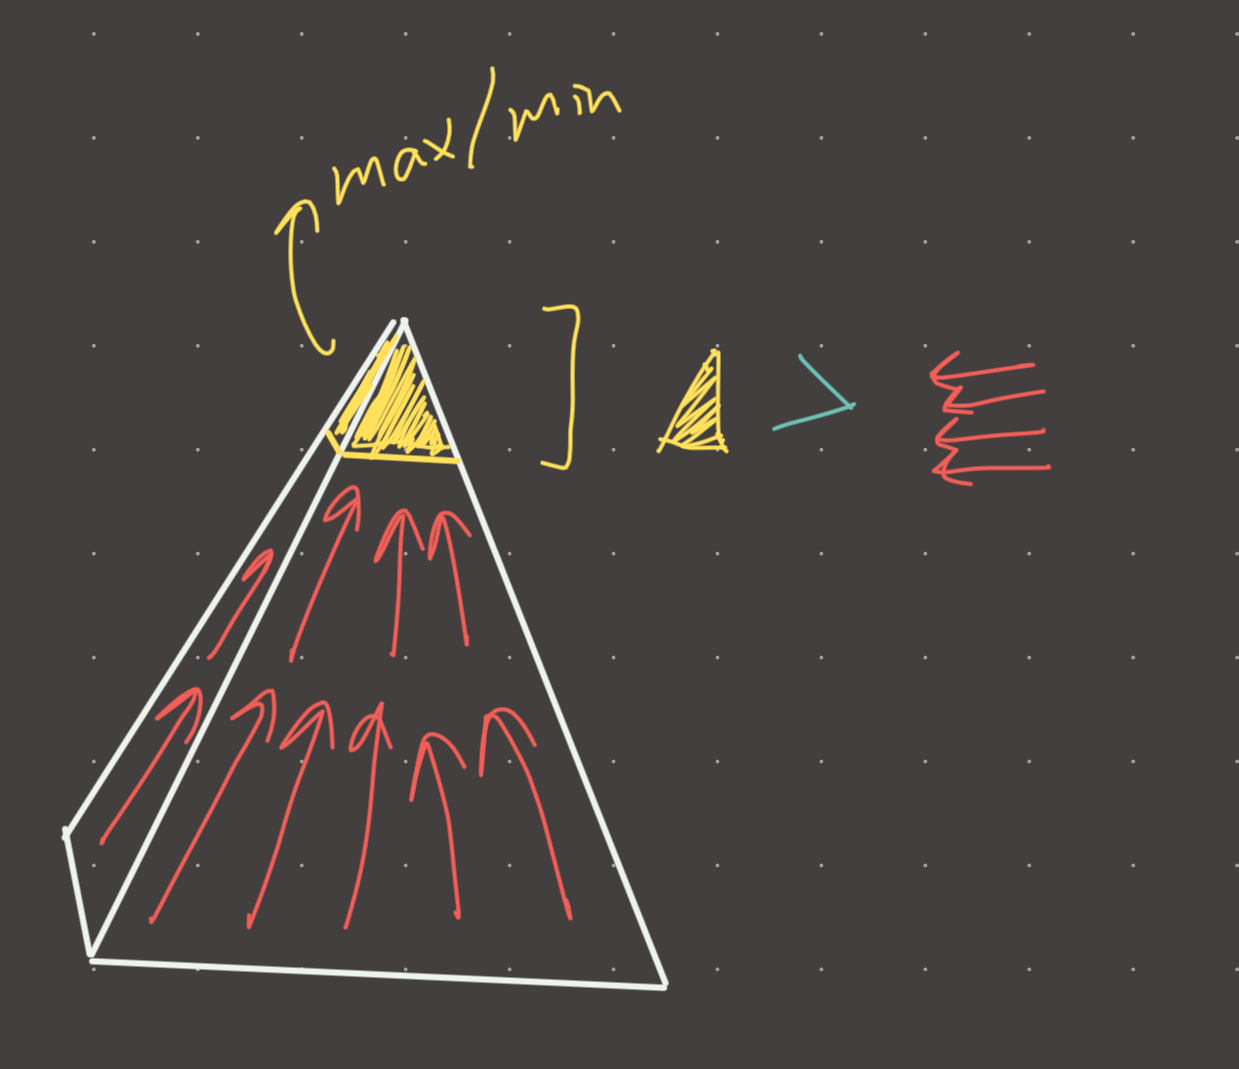 max/min
>